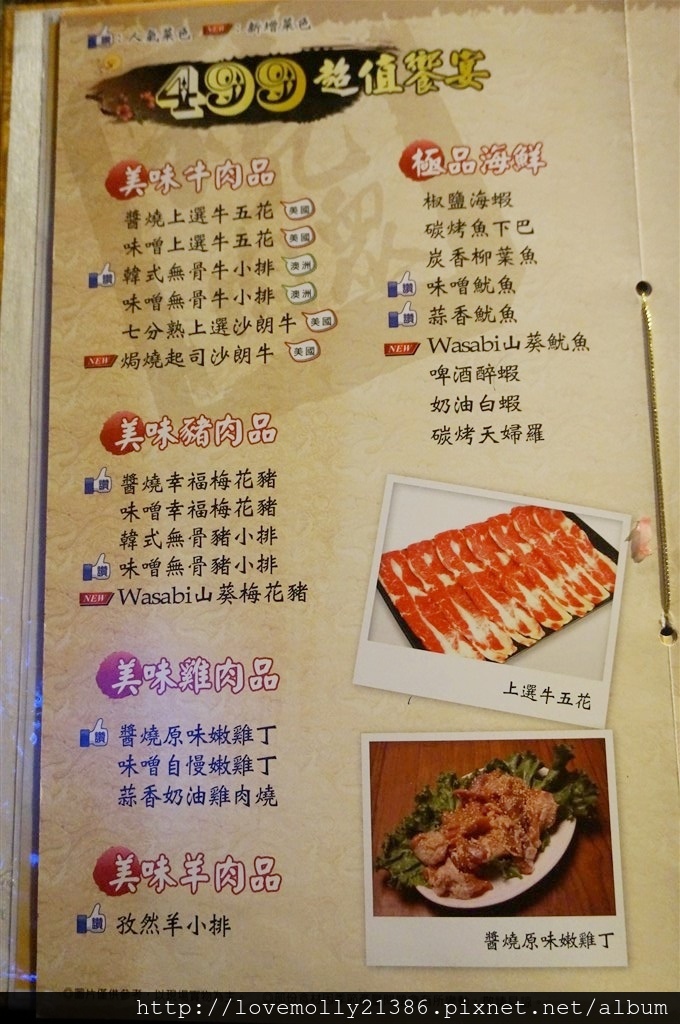 讚：人氣菜色 NEW：新增菜色
499超值饗宴
美味牛肉品
醬燒上選牛五花 美國
味噌上選牛五花 美國
讚 韓式無骨牛小排 澳洲
味噌無骨牛小排 澳洲
七分熟上選沙朗牛 美國
NEW 焗燒起司沙朗牛 美國
美味豬肉品
讚 醬燒幸福梅花豬
味噌幸福梅花豬
韓式無骨豬小排
讚 味噌無骨豬小排
NEW Wasabi山葵梅花豬
美味雞肉品
讚 醬燒原味嫩雞丁
味噌自慢嫩雞丁
蒜香奶油雞肉燒
美味羊肉品
讚 孜然羊小排
極品海鮮
椒鹽海蝦
碳烤魚下巴
炭香柳葉魚
讚 味噌魷魚
讚 蒜香魷魚
NEW Wasabi山葵魷魚
啤酒醉蝦
奶油白蝦
碳烤天婦羅
上選牛五花
醬燒原味嫩雞丁
http://lovemolly21386.pixnet.net/album